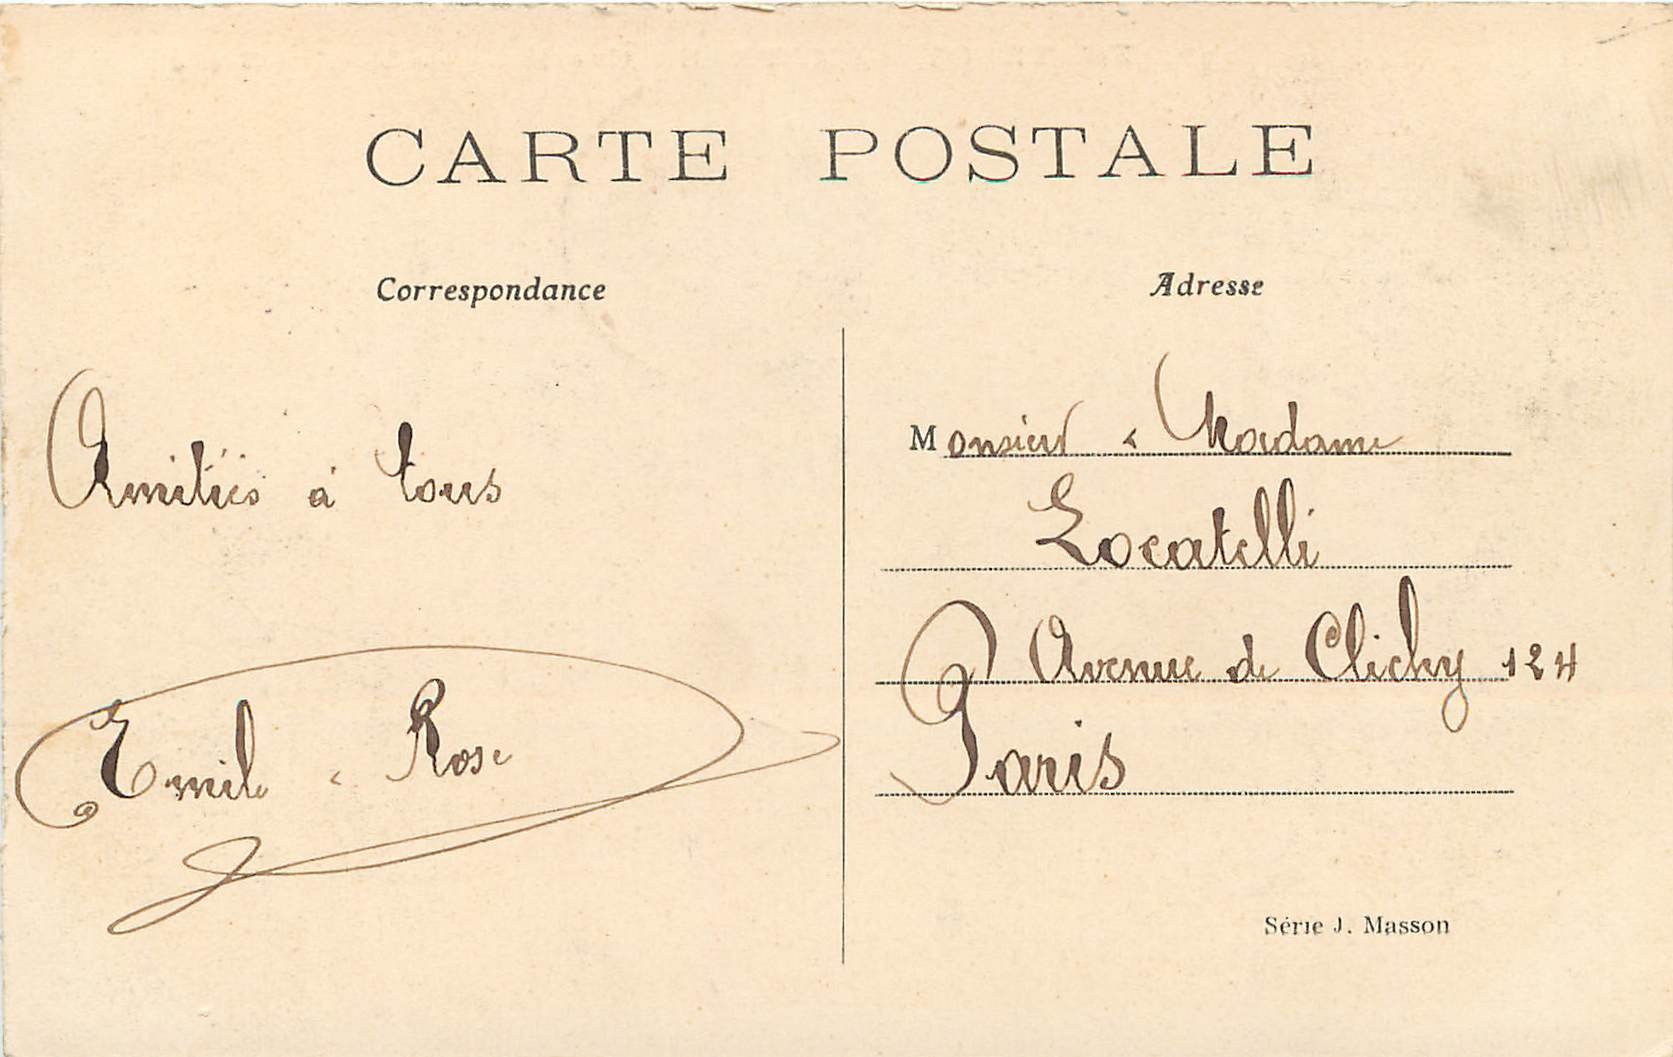 CARTE POSTALE
Correspondance
Amitiés à tous
Emile & Rose
Adresse
Monsieur & Madame
Locatelli
Avenue de Clichy 124
Paris
Série J. Masson